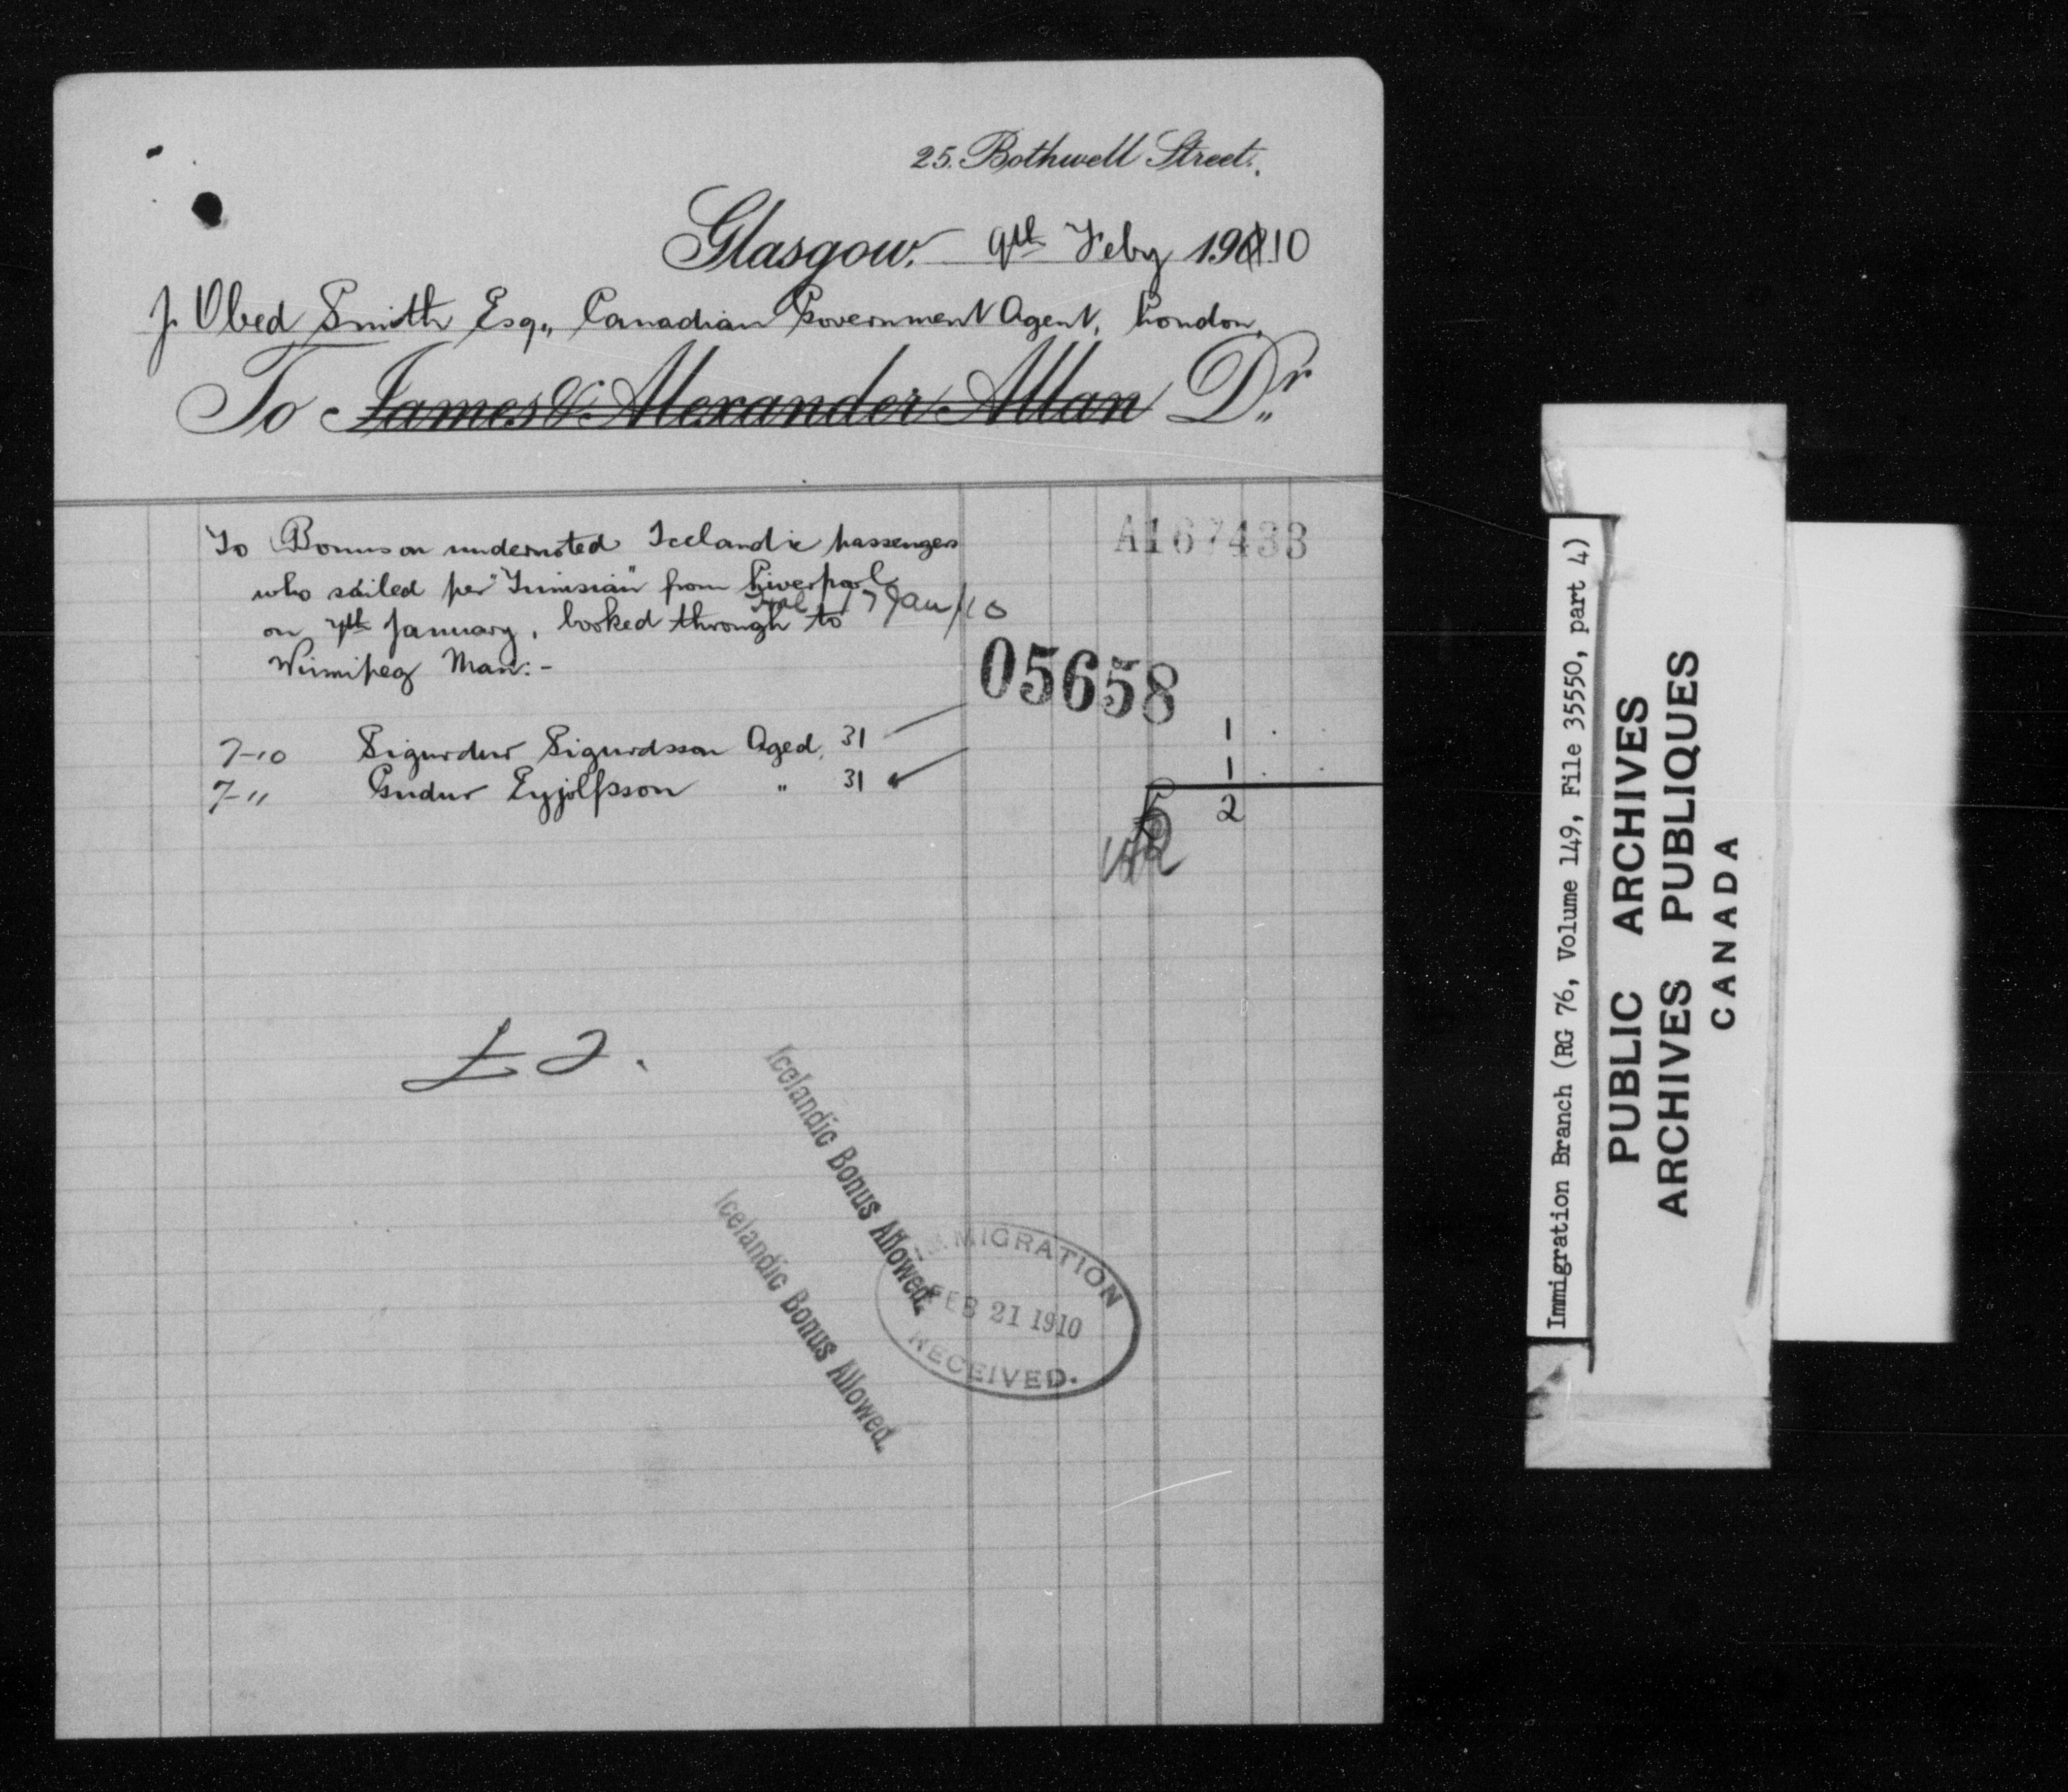 25. Bothwell Street.
Glasgow. 9th Feby 1910
J. Obed Smith Esq., Canadian Government Agent, London,
To James & Alexander Allan Dr
A167433
To Bonus on undernoted Icelandic passengers
who sailed per "Tunisian" from Liverpool
17 Jan/10
on 7th January, booked through to
Winnipeg Man:-
05658
7-10 Sigurdur Sigurdsson Aged 31 1
7-11 Gudur Eyjolfsson " 31 1
£ 2
£2.
Icelandic Bonus Allowed.
Icelandic Bonus Allowed.
IMMIGRATION
FEB 21 1910
RECEIVED.
Immigration Branch (RG 76, Volume 149, File 35550, part 4)
PUBLIC ARCHIVES
ARCHIVES PUBLIQUES
CANADA